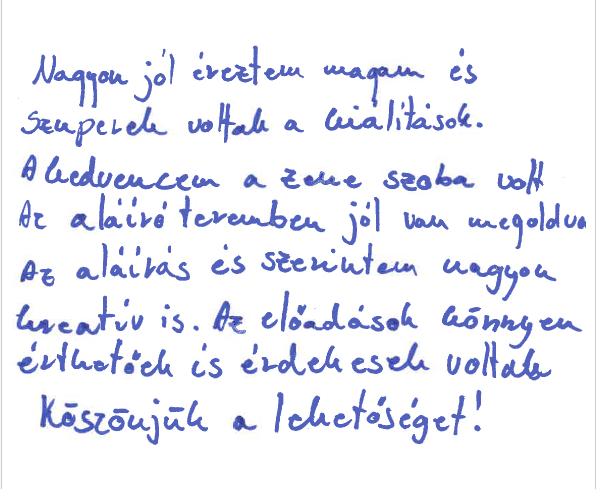 Nagyon jól éreztem magam és
szuperek voltak a kiálítások.
A kedvencem a zene szoba volt
Az aláíró teremben jól van megoldva
Az aláírás és szerintem nagyon
kreatív is. Az előadások könnyen
érthetőek is érdekesek voltak
Köszönjük a lehetőséget!